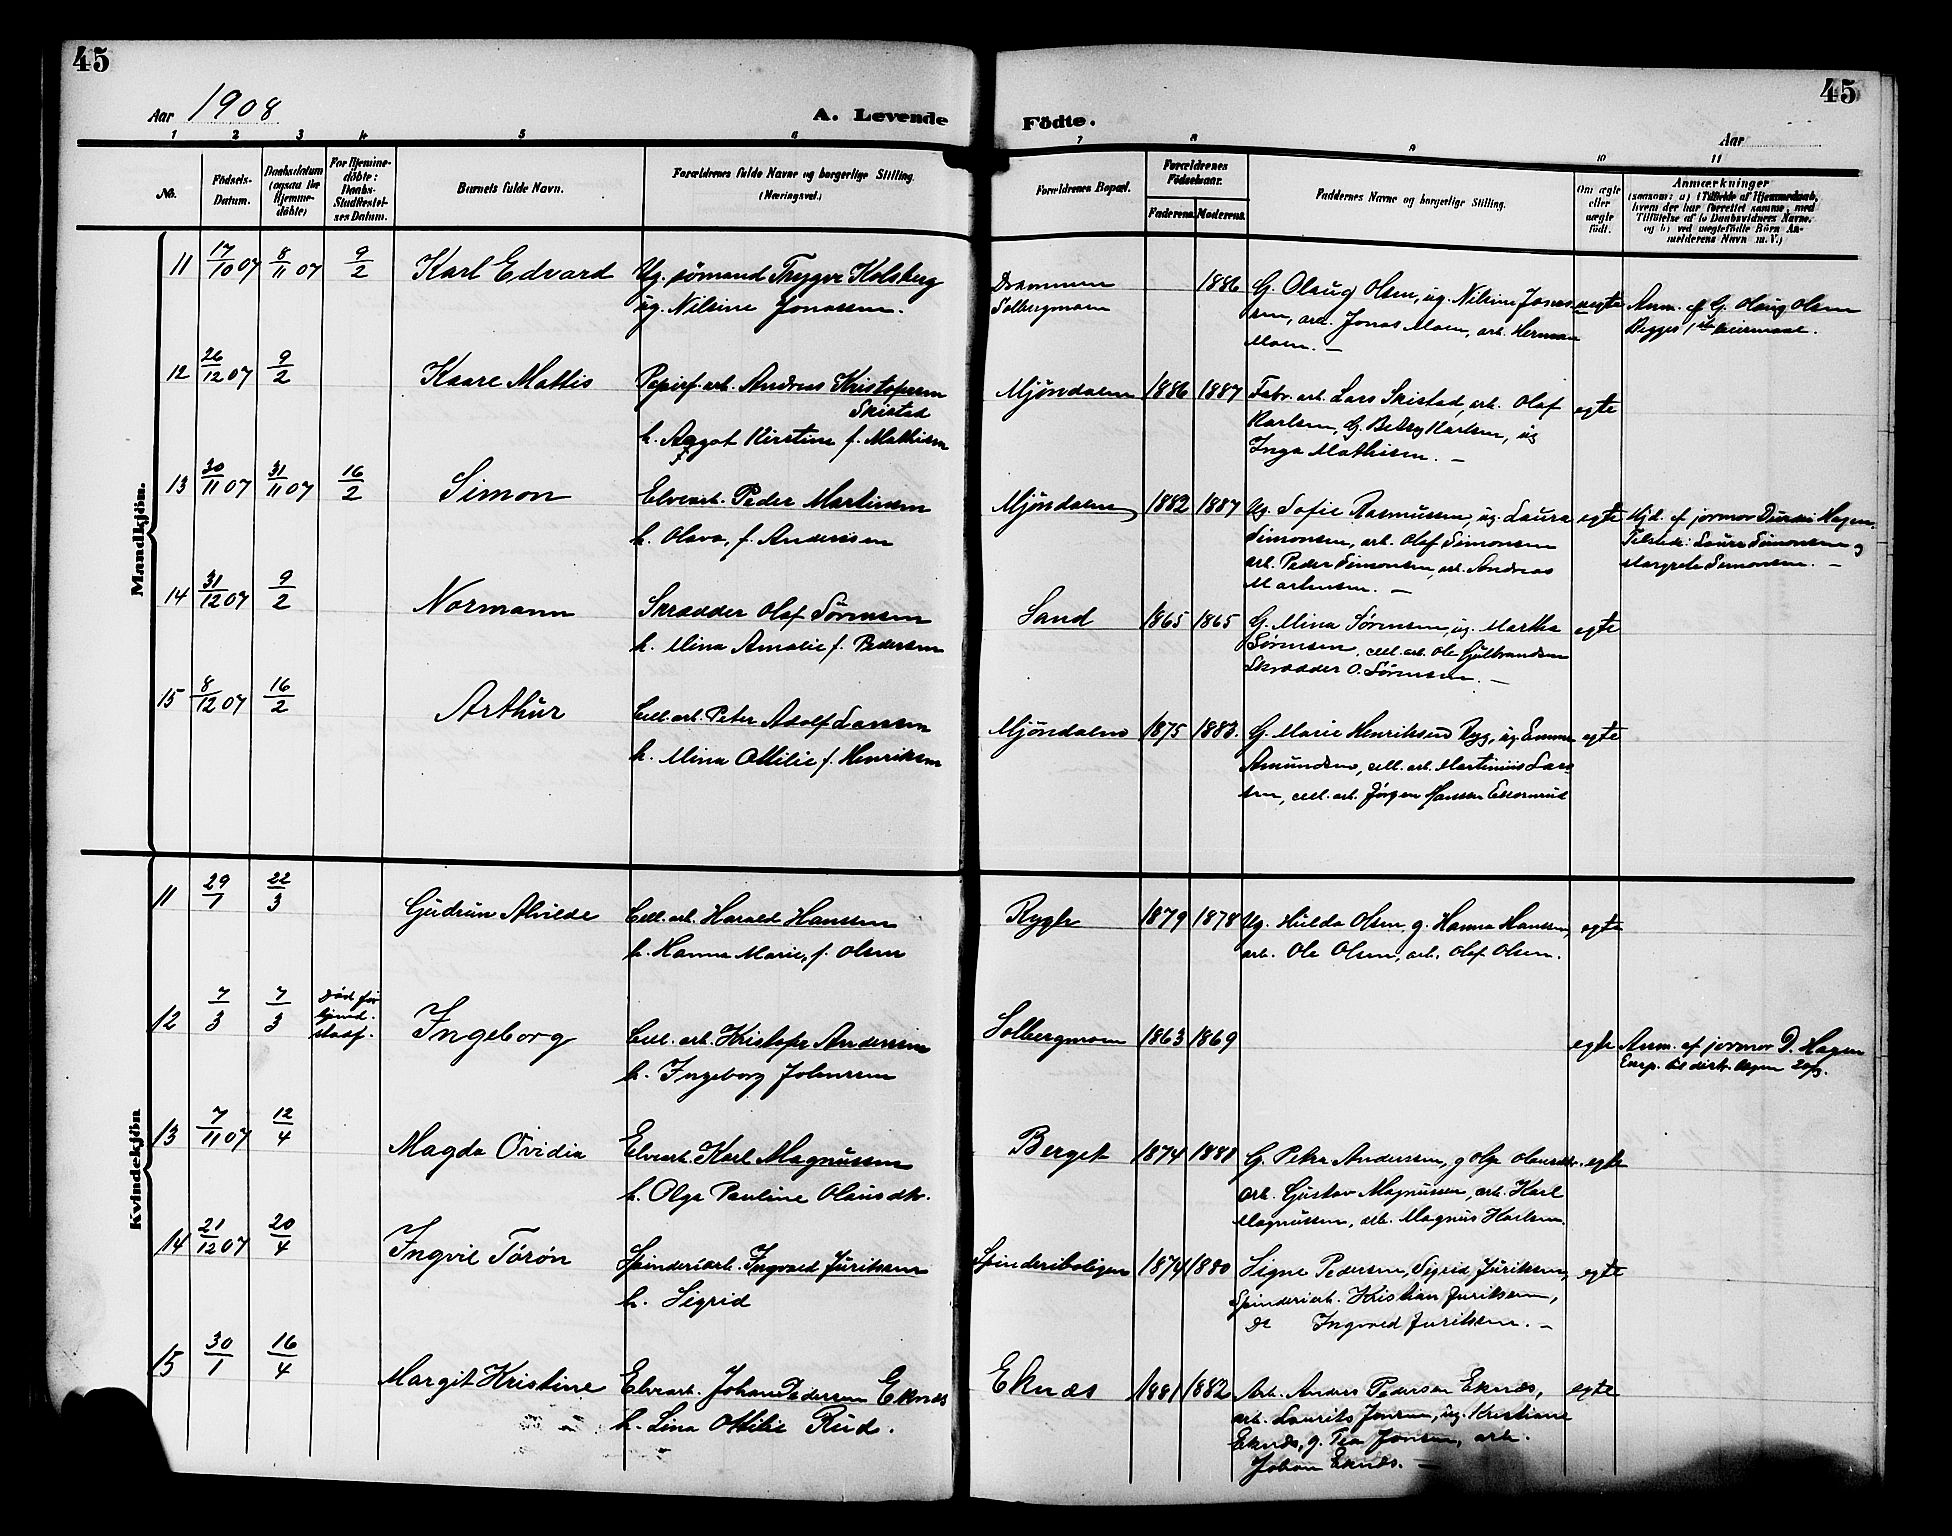 45
45
Aar 1908
A. Levende Födte.
Aar
1 2 3 4 5 6 7 8 9 10 11
No.
Födsels-Datum.
Daabsdatum (ogsaa for Hjemme-döbte)
For Hjemme-döbte: Daabs-Stadfestel-ses Datum.
Barnets fulde Navn.
Forældrenes fulde Navne og borgerlige Stilling. (Næringsvei.)
Forældrenes Bopæl.
Forældrenes Födselsaar.
Faderens. Moderens.
Faddernes Navne og borgerlige Stilling.
Om ægte eller uægte födt.
Anmærkninger
(saasom: a) (Tilfælde af Hjemmedaab, hvem der har forrettet samme, med Tilföielse af to Daabsvidners Navne, og b) ved uægtefödte Börn An-melderens Navn m. V.)
Mandkjön.
11 17/10 07 8/11 07 9/2 Karl Edvard
Ug. sömand Trygve Kolsberg
ug. Nilsine Jonassen.
Drammen
Solbergmoen
1886
G. Olaug Olsen, ug. Nilsine Jonas
sen, arb. Jonas Moen, arb. Herman
Moen. —
uegte
Anm. af G. Olaug Olsen
Begges 1ste leiermaal.
12 26/12 07 9/2 Kaare Mattis
Papirf. arb. Andreas Kristofersen
Skistad
h. Aagot Kirstine f. Mathisen
Mjöndalen 1886 1887
Fabr. arb. Lars Skistad, arb. Olaf
Karlsen, G. Betsy Karlsen, ug
Inga Mathisen. —
egte
13 30/11 07 31/11 07 16/2 Simon
Elvearb. Peder Martinsen
h. Olava, f. Andersen
Mjöndalen 1882 1887
Ug. Sofie Rasmussen, ug. Laura
Simonsen, arb. Olaf Simonsen
arb. Peder Simonsen, arb. Andreas
Martinsen. —
egte
Hjd. af jormor Hagen.
Tilstede: Laura Simonsen og
Margrete Simonsen. —
14 31/12 07 9/2 Normann
Skrædder Olaf Sörensen
h. Mina Amalie f. Pedersen
Sand 1865 1865
G. Mina Sörensen, ug. Martha
Sörensen, cell. arb. Ole Gulbrandsen
Skrædder O. Sörensen. —
egte
15 8/12 07 16/2 Arthur
Cell. arb. Peter Adolf Larsen
h. Mina Otilie f. Henriksen
Mjöndalen 1875 1883.
G. Marie Henriksen Ryg, ug Emma
Amundsen, cell. arb. Martinius Lar
sen, cell. arb. Jörgen Hansen
egte
Kvindekjön
11 29/1 22/3 Gudrun Alvilde
Cell. arb. Harald Hanssen
h. Hanna Marie, f. Olsen
Rygh 1879 1878
Ug. Hulda Olsen, g. Hanna Hanssen,
arb. Ole Olsen, arb. Olaf Olsen.
egte
12 7/3 7/3 död för
stadf.
Ingeborg
Cell. arb. Kristofer Andersen
h. Ingeborg Johnssen
Solbergmoen 1863 1869
egte
Anm. af jormor D. Hagen
13 7/11 07 12/4 Magda Ovidia
Elvearb. Karl Magnussen
h. Olga Pauline Olausdtr.
Berget 1874 1888
G. Petra Anderssen, g Olga Olausdtr.
arb. Gustav Magnussen, arb. Karl
Magnussen, arb. Magnus Karlsen.
egte
14 21/12 07 20/4 Ingvil Törön
Spinderiarb. Ingvald Juriksen
h. Sigrid
Spinderiboligen 1874 1880
Signe Pedersen, Sigrid Juriksen,
Spinderiarb. Kristian Juriksen,
do Ingvald Juriksen. —
egte
15 30/1 16/4 Margit Kristine
Elvearb. Johan Pedersen Eknæs
h. Lina Otilie Rud.
Eknæs 1881 1882
Arb. Anders Pedersen Eknæs,
arb. Laurits Jonsen, ug. Kristiane
Eknæs, g. Tea Jonsen, arb.
Johan Eknæs. —
egte